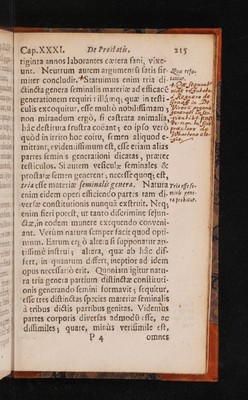 Cap. XXXI. De Prostatis. 215
triginta annos laborantes cætera sani, vixe-
runt. Neutrum autem argumentũ satis fir-
miter concludit. *Statuimus enim tria di-
stincta genera seminalis materiæ ad efficacẽ
generationem requiri: illámq; quæ in testi-
culis excoquitur, esse multò nobilissimam;
non mirandum ergò, si castrata animalia,
hâc destituta frustra coëant; eo ipso verò
quòd in irrito hoc coitu, semen aliquod e-
mittant, evidentissimum est, esse etiam alias
partes seminis generationi dicatas, præter
testiculos. Si autem vesiculæ seminales &
prostatæ semen generent; necesse quoq; est,
tria esse materiæ seminalis genera. Natura
enim eidem operi efficiendo partes tam di-
versæ constitutionis nunquã exstruit. Neq;
enim fieri potest, ut tanto discrimine sejun-
ctæ, in eodem munere exequendo conveni-
ant. Verùm natura semper facit quod opti-
mum. Earum ergò alterâ si supponatur ap-
tissimè instrui; altera, quæ ab hâc dif-
fert, in quantum differt, ineptior ad idem
opus necessariò erit. Quoniam igitur natu-
ra tria genera partium distinctæ constituti-
onis generando semini formavit; sequitur,
esse tres distinctas species materiæ seminalis
à tribus dictis partibus genitas. Videmus
partes corporis diversas admodũ esse, ac
dissimiles; quare, minùs verisimile est,
P 4 omnes
Quæ refu-
tantur.
Tria esse se-
minis gene-
ra probatur.